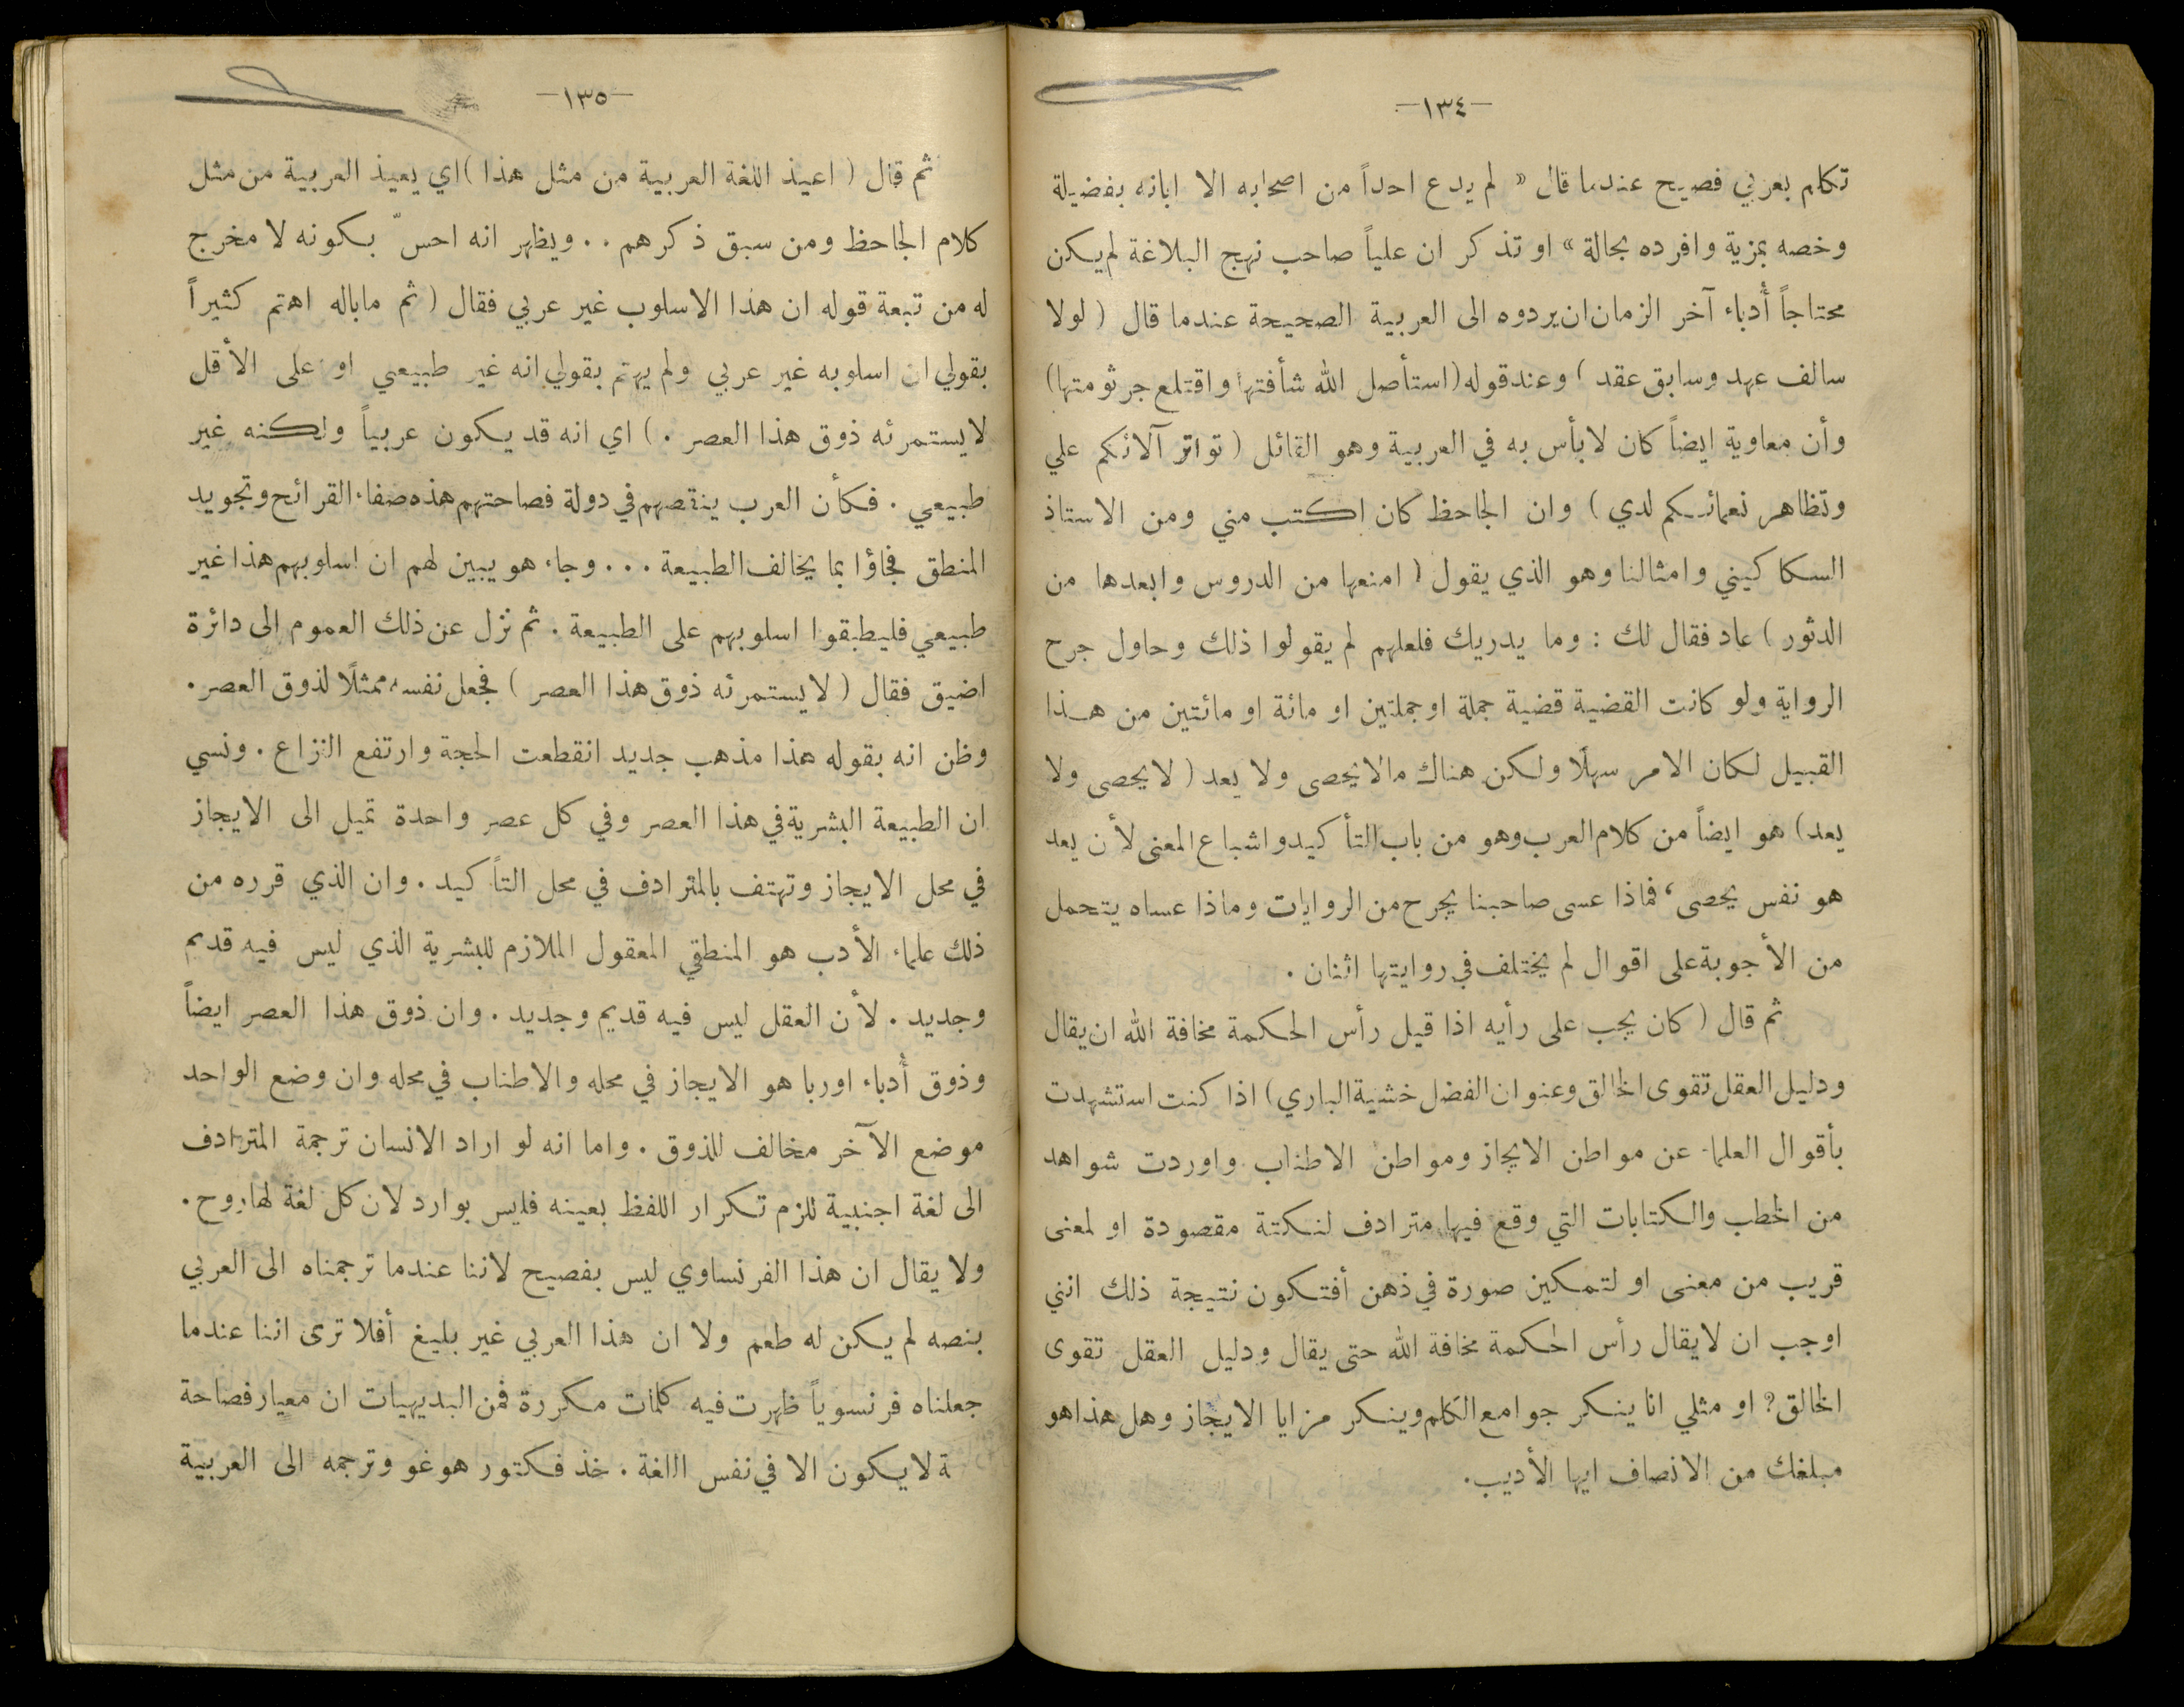 -١٣٤-
تكلم بعربي فصيح عندما قال « لم يدع احداً من اصحابه الا ابانه بفضيلة
وخصه بمزية وافرده بحالة » او تذكر ان علياً صاحب نهج البلاغة لم يكن
محتاجاً أدباء آخر الزمان ان يردوه الى العربية الصحيحة عندما قال ( لولا
سالف عهد وسابق عقد ) وعند قوله (استأصل الله شأفتها واقتلع جرثومتها)
وأن معاوية ايضاً كان لا بأس به في العربية وهو القائل ( تواتر آلائكم علي
وتظاهر نعمائكم لدي ) وان الجاحظ كان اكتب مني ومن الاستاذ
السكاكيني وامثالنا وهو الذي يقول ( امنعها من الدروس وابعدها من
الدثور ) عاد فقال لك : وما يدريك فلعلهم لم يقولوا ذلك وحاول جرح
الرواية ولو كانت القضية قضية جملة او جملتين او مائة او مائتين من هذا
القبيل لكان الامر سهلًا ولكن هناك مالا يحصى ولا يعد ( لا يحصى ولا
يعد ) هو ايضاً من كلام العرب وهو من باب التأكيد واشباع المعنى لأن يعد
هو نفس يحصى ، فماذا عسى صاحبنا يجرح من الروايات وماذا عساه يتحمل
من الأجوبة على اقوال لم يختلف في روايتها اثنان .
ثم قال ( كان يجب على رأيه اذا قيل رأس الحكمة مخافة الله ان يقال
ودليل العقل تقوى الخالق وعنوان الفضل خشية الباري ) اذا كنت استشهدت
بأقوال العلماء عن مواطن الايجاز ومواطن الاطناب واوردت شواهد
من الخطب والكتابات التي وقع فيها مترادف لنكتة مقصودة او لمعنى
قريب من معنى او لتمكين صورة في ذهن أفتكون نتيجة ذلك انني
اوجب ان لا يقال رأس الحكمة مخافة الله حتى يقال ودليل العقل تقوى
الخالق ? او مثلي انا ينكر جوامع الكلم وينكر مزايا الايجاز وهل هذا هو
مبلغك من الانصاف ايها الأديب .
-١٣٥-
ثم قال ( اعيذ اللغة العربية من مثل هذا ) اي يعيذ العربية من مثل
كلام الجاحظ ومن سبق ذكرهم . . ويظهر انه احسّ بكونه لا مخرج
له من تبعة قوله ان هذا الاسلوب غير عربي فقال ( ثم ماباله اهتم كثيراً
بقولي ان اسلوبه غير عربي ولم يهتم بقولي انه غير طبيعي او على الأقل
لا يستمرئه ذوق هذا العصر . ) اي انه قد يكون عربياً ولكنه غير
طبيعي . فكأن العرب ينقصهم في دولة فصاحتهم هذه صفاء القرائح وتجويد
المنطق فجاؤا بما يخالف الطبيعة . . . وجاء هو يبين لهم ان اسلوبهم هذا غير
طبيعي فليطبقوا اسلوبهم على الطبيعة . ثم نزل عن ذلك العموم الى دائرة
اضيق فقال ( لا يستمرئه ذوق هذا العصر ) فجعل نفسه ممثلًا لذوق العصر .
وظن انه بقوله هذا مذهب جديد انقطعت الحجة وارتفع النزاع . ونسي
ان الطبيعة البشرية في هذا العصر وفي كل عصر واحدة تميل الى الايجاز
في محل الايجاز وتهتف بالمترادف في محل التأكيد . وان الذي قرره من
ذلك علماء الأدب هو المنطقي المعقول الملازم للبشرية الذي ليس فيه قديم
وجديد . لأن العقل ليس فيه قديم وجديد . وان ذوق هذا العصر ايضاً
وذوق أدباء اوربا هو الايجاز في محله والاطناب في محله وان وضع الواحد
موضع الآخر مخالف للذوق . واما انه لو اراد الانسان ترجمة المترادف
الى لغة اجنبية للزم تكرار اللفظ بعينه فليس بوارد لان كل لغة لها روح .
ولا يقال ان هذا الفرنساوي ليس بفصيح لاننا عندما ترجمناه الى العربي
بنصه لم يكن له طعم ولا ان هذا العربي غير بليغ أفلا ترى اننا عندما
جعلناه فرنسوياً ظهرت فيه كلمات مكررة فمن البديهيات ان معيار فصاحة
ة لا يكون الا في نفس اللغة . خذ فكتور هوغو وترجمه الى العربية